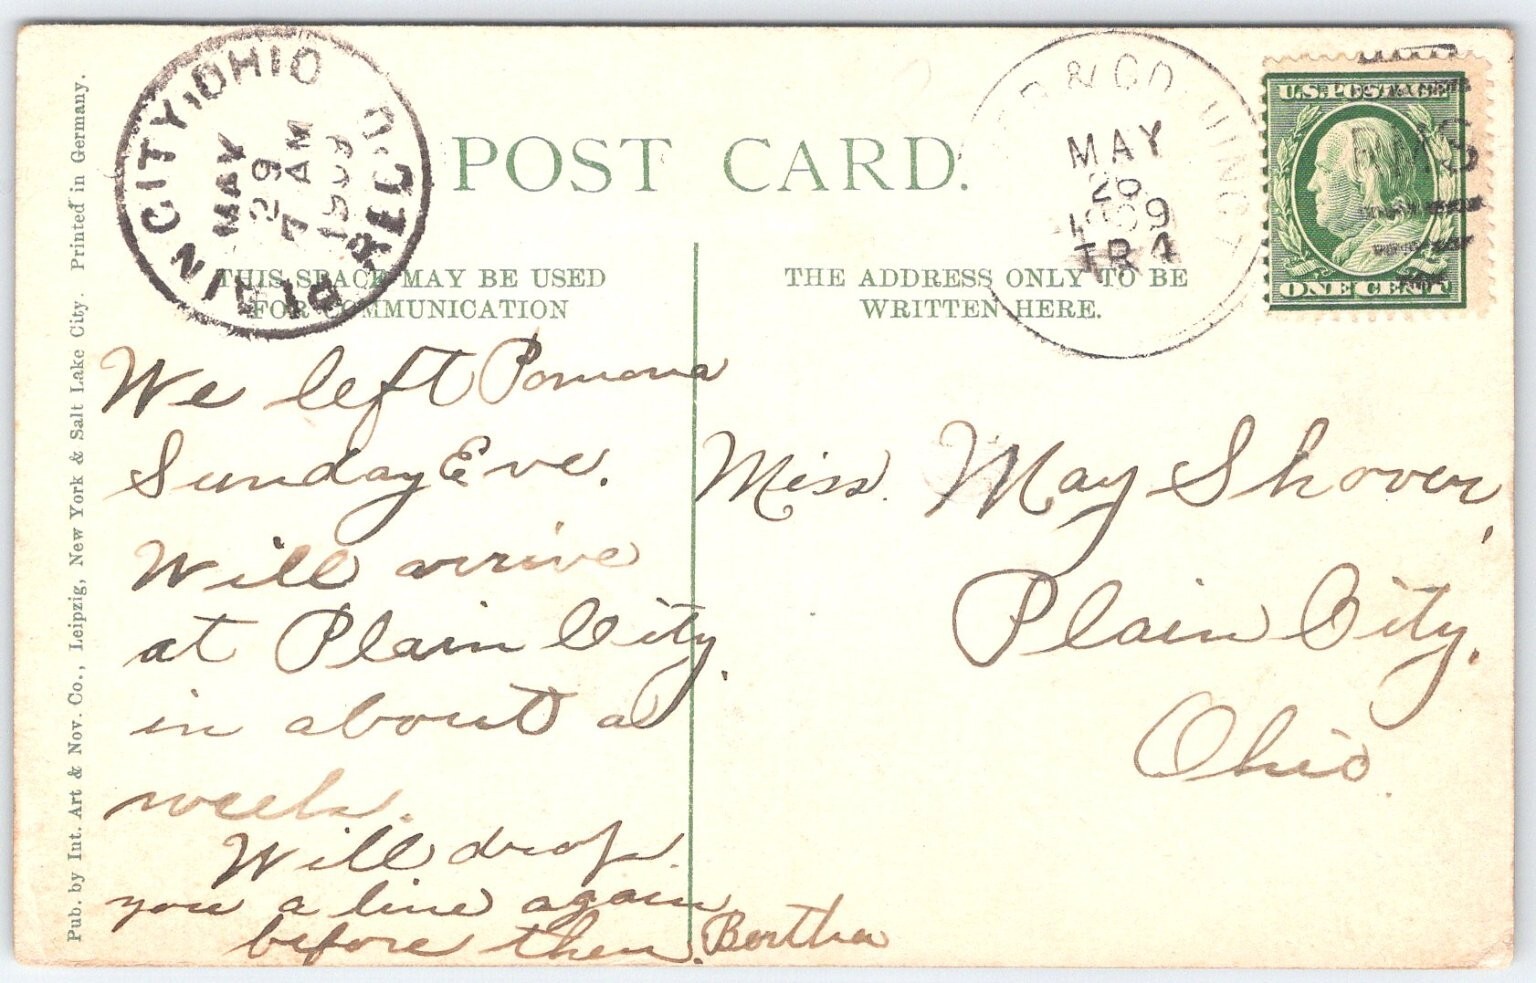 PLAIN CITY, OHIO REC'D.
MAY
29
7 AM
1909
POST CARD.
& CO
MAY
26
1909
TR 4
U.S. POSTAGE
ONE CENT
RMS
THIS SPACE MAY BE USED
FOR COMMUNICATION
THE ADDRESS ONLY TO BE
WRITTEN HERE.
We left Pomona
Sunday Eve.
Will arrive
at Plain City.
in about a
week.
Will drop
you a line again
before then. Bertha
Miss. May Shover,
Plain City.
Ohio.
Pub. by Int. Art & Nov. Co., Leipzig, New York & Salt Lake City. Printed in Germany.